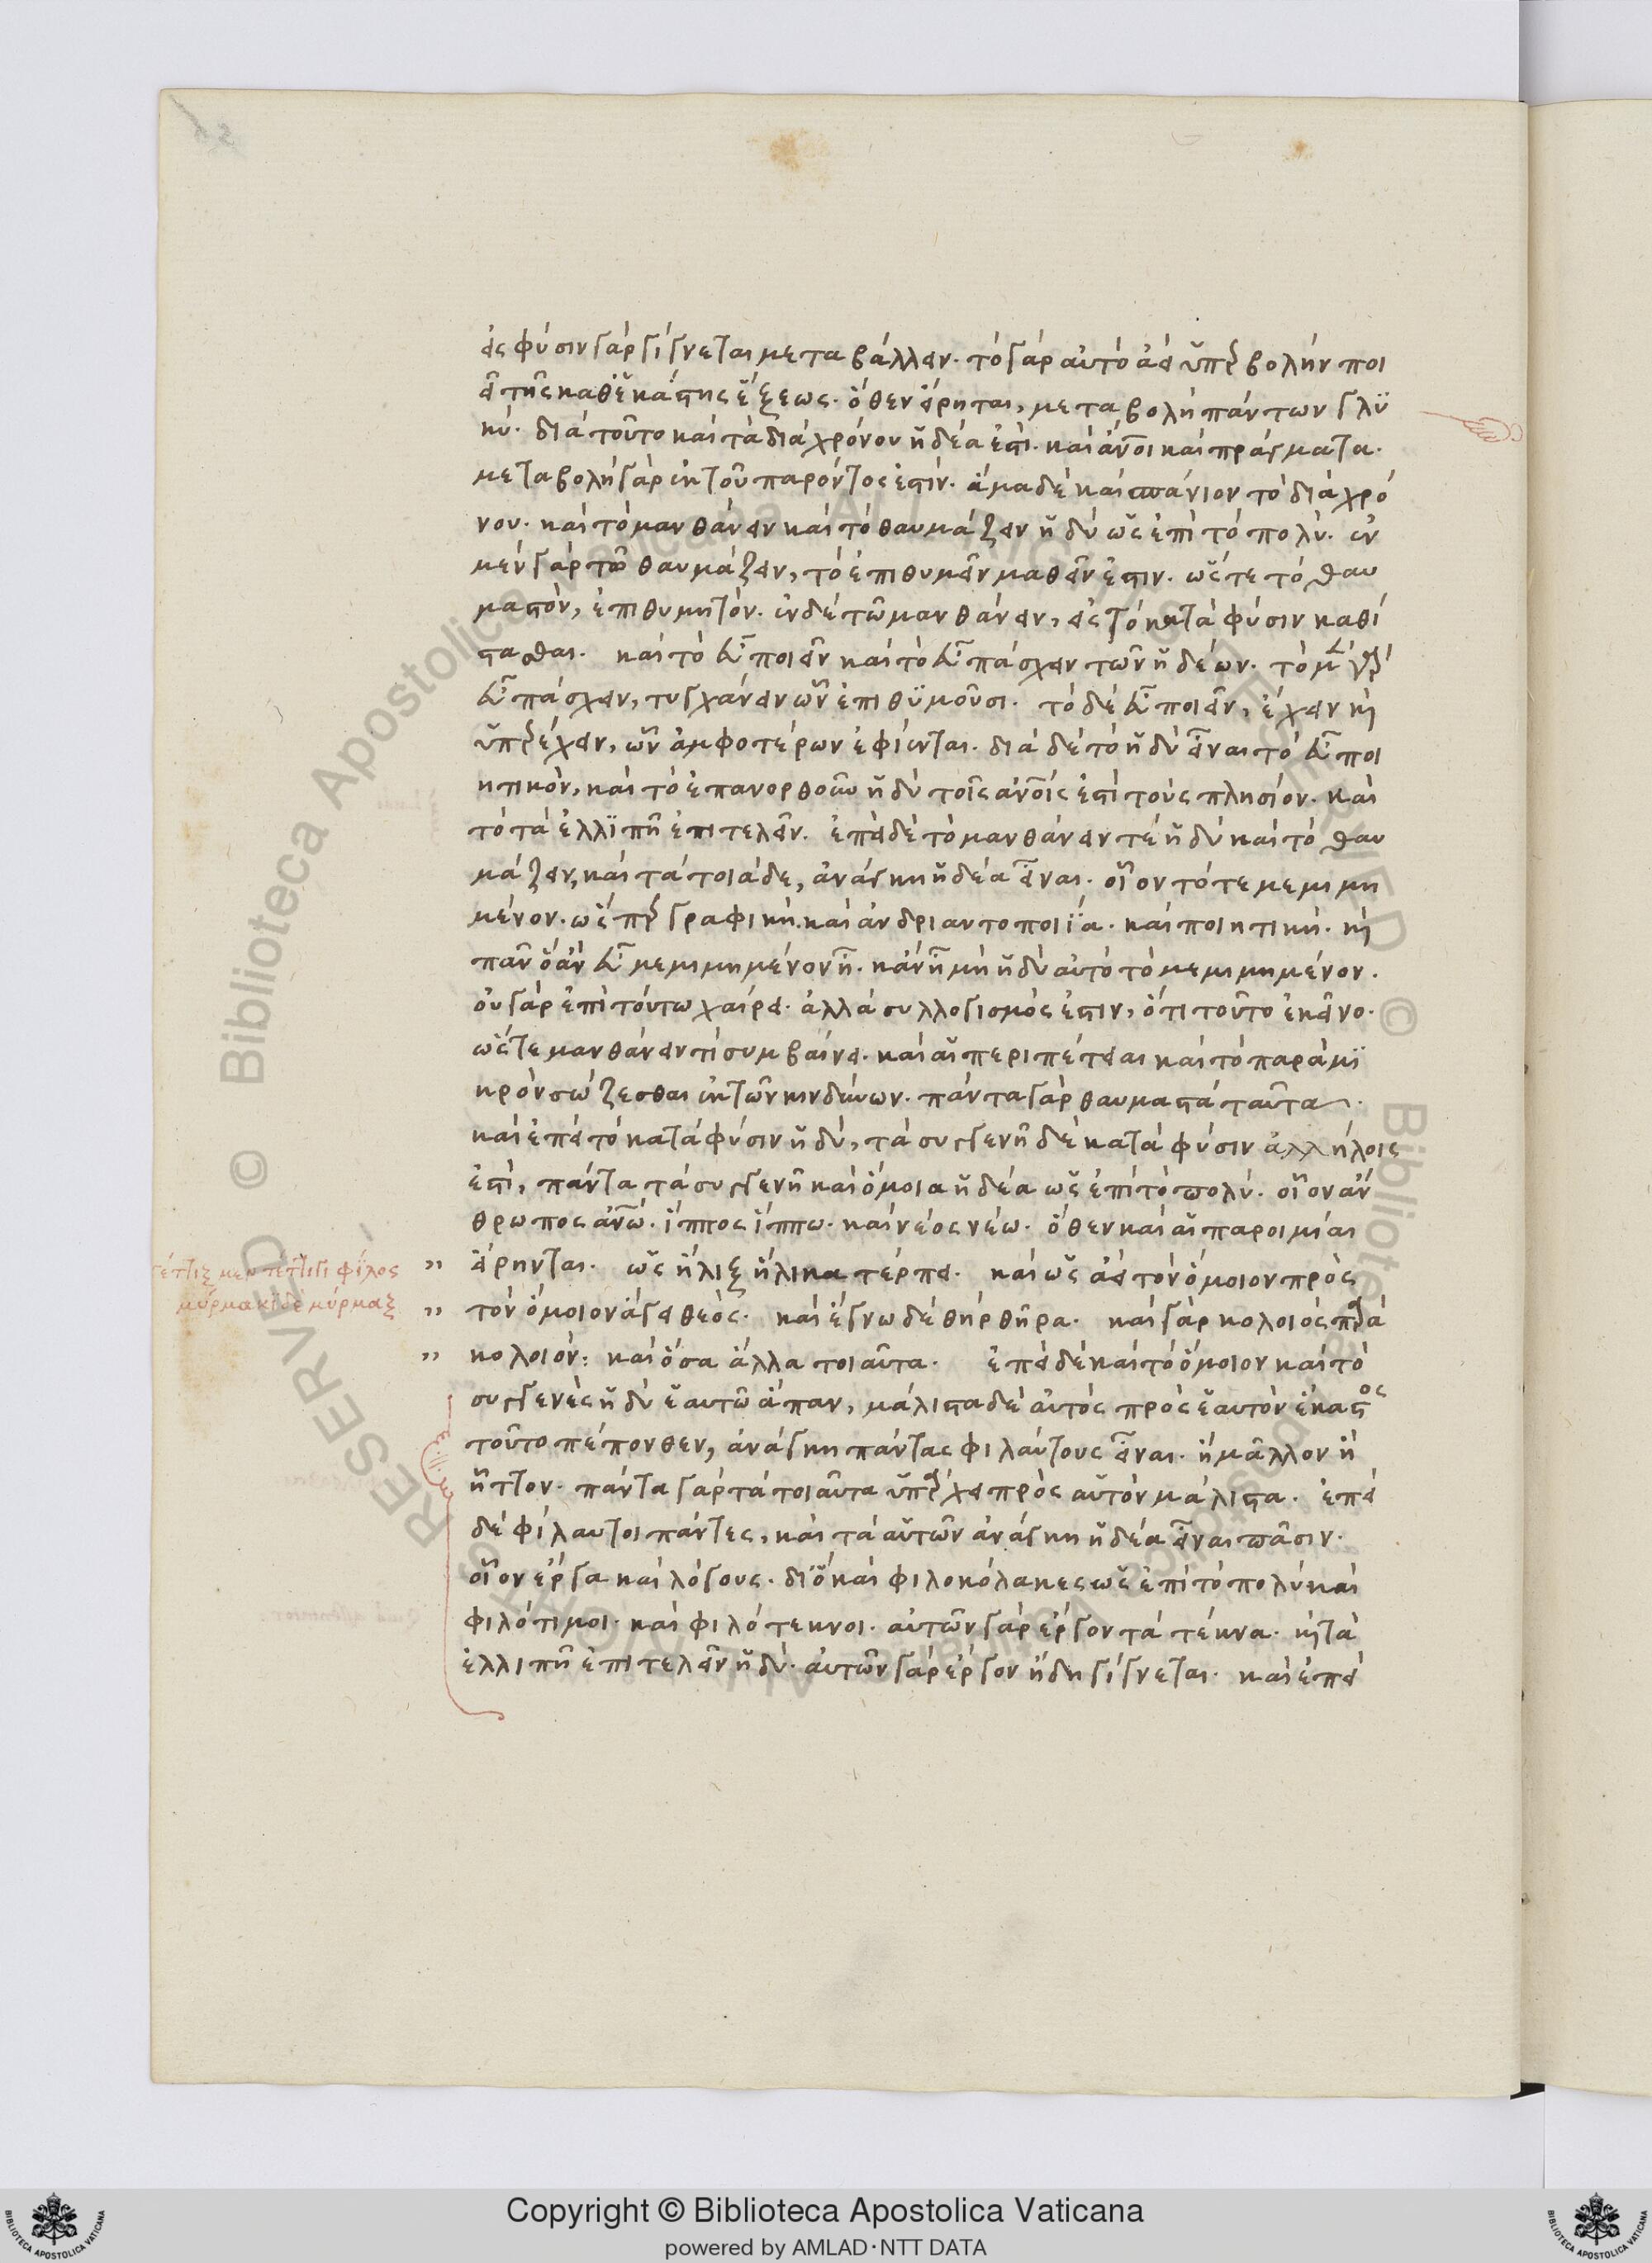 εἰς φύσιν γὰρ γίγνεται μεταβάλλειν. τὸ γὰρ αὐτὸ ἀεὶ ὑπερβολὴν ποι
εῖ τῆς καθεκάστης ἕξεως. ὅθεν εἴρηται, μεταβολὴ πάντων γλυ
κύ. διὰ τοῦτο καὶ τὰ διὰ χρόνου ἡδέα ἐστὶ. καὶ ἄνοι καὶ πράγματα.
μεταβολὴ γὰρ ἐκ τοῦ παρόντος ἐστίν. ἅμα δὲ καὶ σπάνιον τὸ διὰ χρό
νου. καὶ τὸ μανθάνειν καὶ τὸ θαυμάζειν ἡδὺ ὡς ἐπὶ τὸ πολύ. ἐν
μὲν γὰρ τῶ θαυμάζειν, τὸ ἐπιθυμεῖν μαθεῖν ἐστιν. ὥστε τὸ θαυ
μαστὸν, ἐπιθυμητόν. ἐν δὲ τῶ μανθάνειν, εἰς τὸ κατὰ φύσιν καθί
στασθαι. καὶ τὸ εὖ ποιεῖν καὶ τὸ εὖ πάσχειν τῶν ἡδέων. τὸ μὲν γὰρ
εὖ πάσχειν, τυγχάνειν ὧν ἐπιθϋμοῦσι. τὸ δὲ εὖ ποιεῖν, ἔχειν καὶ
ὑπερέχειν, ὧν ἀμφοτέρων ἐφίενται. διὰ δὲ τὸ ἡδὺ εἶναι τὸ εὖ ποι
ητικὸν, καὶ τὸ ἐπανορθοῦν ἡδὺ τοῖς ἀνοις ἐστὶ τοὺς πλησίον. καὶ
τὸ τὰ ἐλλϊπῆ ἐπιτελεῖν. ἐπεὶ δὲ τὸ μανθάνειν τὲ ἡδὺ καὶ τὸ θαυ
μάζειν, καὶ τὰ τοιάδε, ἀνάγκη ἡδέα εἶναι. οἷον τό τε μεμιμη
μένον. ὥσπερ γραφικὴ. καὶ ἀνδριαντοποιΐα. καὶ ποιητική. καὶ
πᾶν ὃ ἂν εὖ μεμιμημένον ἦ. κἂν ἦ μὴ ἡδὺ αὐτὸ τὸ μεμιμημένον.
οὐ γὰρ ἐπὶ τούτω χαίρει. ἀλλὰ συλλογισμός ἐστιν, ὅτι τοῦτο ἐκεῖνο.
ὥστε μανθάνειν τὶ συμβαίνει. καὶ αἱ περιπέτειαι καὶ τὸ παρὰ μϊ
κρὸν σώζεσθαι ἐκ τῶν κινδύνων. πάντα γὰρ θαυμαστὰ ταῦτα.
καὶ ἐπεὶ τὸ κατὰ φύσιν ἡδὺ, τὰ συγγενῆ δὲ κατὰ φύσιν ἀλλήλοις
ἐστὶ, πάντα τὰ συγγενῆ καὶ ὅμοια ἡδέα ὡς ἐπὶ τὸ πολύ. οἷον ἄν
θρωπος ἀνω. ἵππος ἵππω. καὶ νέος νέω. ὅθεν καὶ αἱ παροιμίαι
τέττιξ μὲν τέττιγι φίλος
μύρμακι δὲ μύρμαξ
" εἴρηνται. ὡς ἧλιξ ἥλικα τέρπει. καὶ ὡς ἀεὶ τὸν ὅμοιον πρὸς
" τὸν ὅμοιον ἄγει θεός. καὶ ἔγνω δὲ θὴρ θῆρα. καὶ γὰρ κολοιὸς παρὰ
" κολοιόν: καὶ ὅσα ἄλλα τοιαῦτα. ἐπεὶ δὲ καὶ τὸ ὅμοιον καὶ τὸ
συγγενὲς ἡδὺ ἑαυτῶ ἅπαν, μάλιστα δὲ αὐτὸς πρὸς ἑαυτὸν ἕκαστος
τοῦτο πέπονθεν, ἀνάγκη πάντας φιλαύτους εἶναι. ἢ μᾶλλον ἢ
ἧττον. πάντα γὰρ τὰ τοιαῦτα ὑπάρχει πρὸς αὑτὸν μάλιστα. ἐπεὶ
δὲ φίλαυτοι πάντες, καὶ τὰ αὑτῶν ἀνάγκη ἡδέα εἶναι πᾶσιν.
οἷον ἔργα καὶ λόγους. διὸ καὶ φιλοκόλακες ὡς ἐπὶ τὸ πολὺ καὶ
φιλότιμοι. καὶ φιλότεκνοι. αὐτῶν γὰρ ἔργον τὰ τέκνα. καὶ τὰ
ἐλλιπῆ ἐπιτελεῖν ἡδύ. αὐτῶν γὰρ ἔργον ἤδη γίγνεται. καὶ ἐπεὶ
Copyright © Biblioteca Apostolica Vaticana
powered by AMLAD·NTT DATA